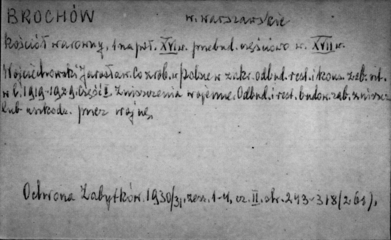 BROCHÓW w. warszawskie
Kościół warowny, 1 na poł. XVI w. przebud. częściowo w. XVII w.
Wojciechowski Jarosław. Co zrob. w Polsce w zakr. odbud. rest. i konserw. zab. szt.
w l. 1919-1929. Część I. Zniszczenia wojenne. Odbud. i rest. budow. zab. zniszcz.
lub uszkodz. przez wojnę.
Ochrona Zabytków. 1930/31, zesz. 1-4, cz. II. str. 243-318 (261).